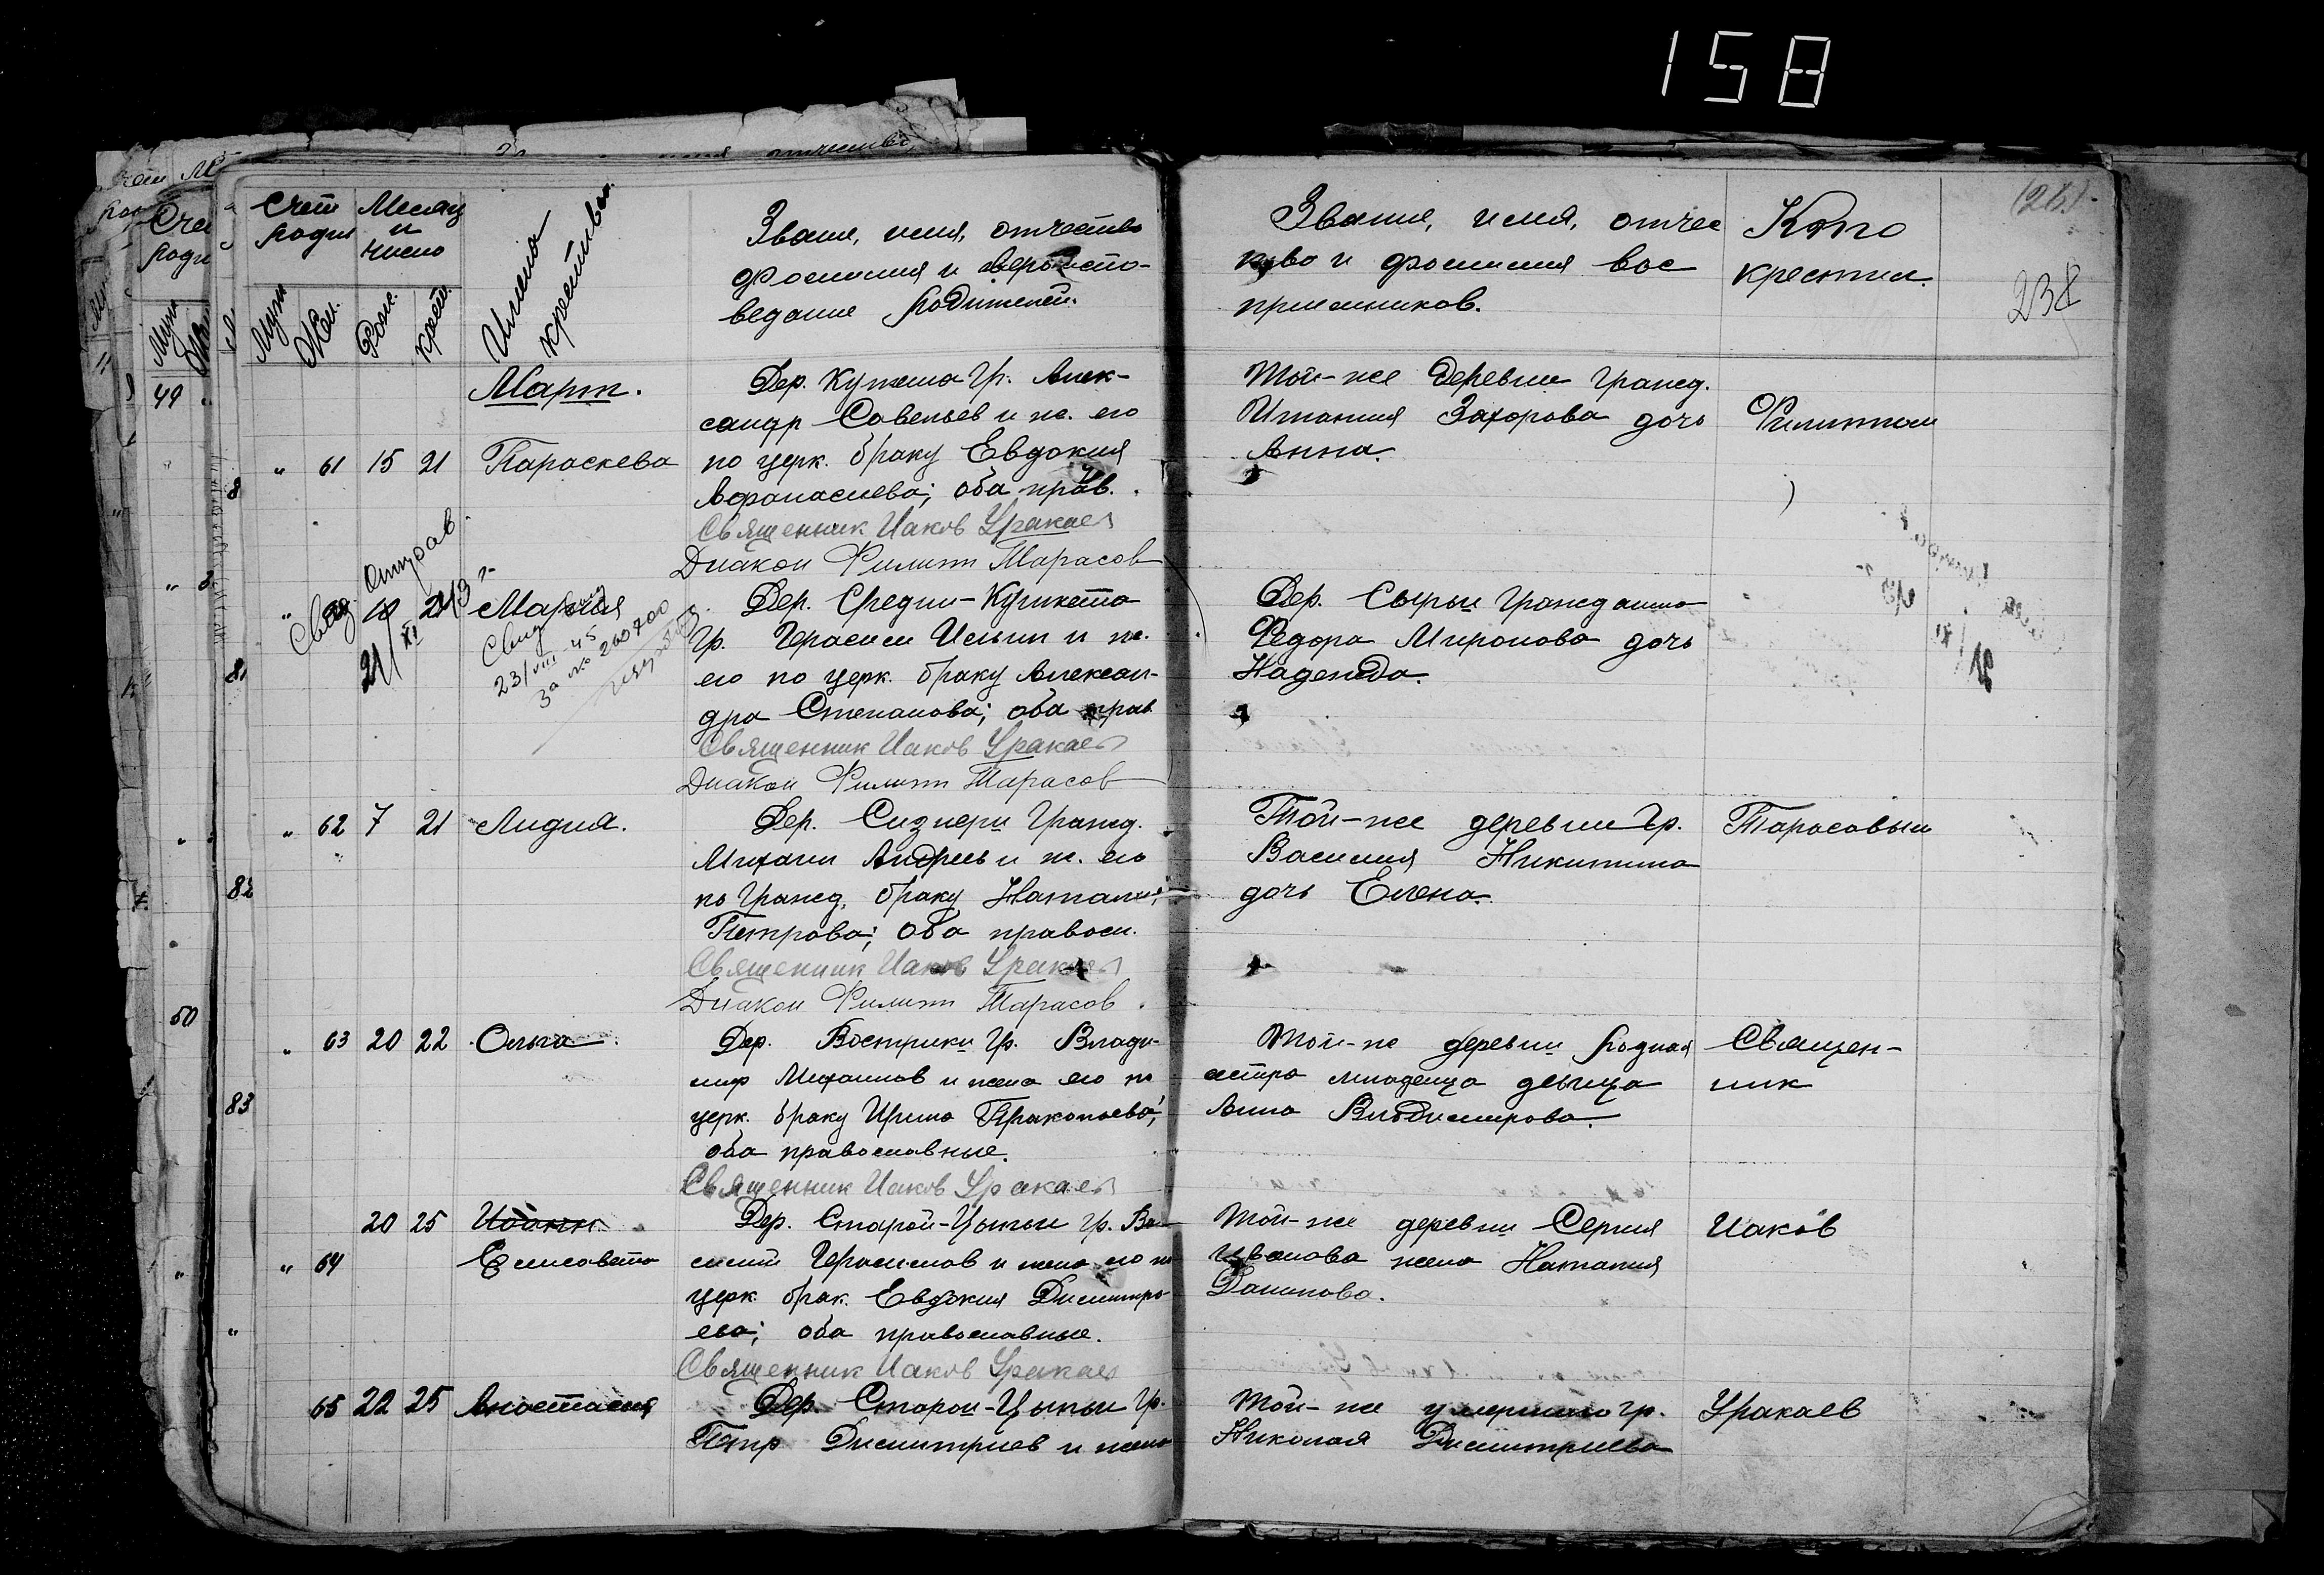 158
(26)
238
Счет родив
Месяц и число
Муж
Жен.
Рожд.
крещ.
Имена крестивш.
Звание, имя, отчество
фамилия и вероиспо-
ведание родителей.
Звание, имя, отчес
тво и фамилия вос
приемников.
Кто
крестил.
Март.
49
" 61 15 21 Параскева
Дер. Кутема Гр. Алек-
сандр Савельев и ж. его
по церк. браку Евдокия
Афанасиева; оба прав.
Священник Иаков Уракаев
Диакон Филипп Тарасов
Той-же деревни гражд.
Игнатия Захарова дочь
Анна.
Филиппом
Свид. Отправ.
21/XI 43 г.
" 18 21 Мария
23/VIII-45
за № 260700
Дер. Средни-Кушкета
Гр. Герасим Ильин и ж.
его по церк. браку Алексан-
дра Степанова; оба прав
Священник Иаков Уракаев
Диакон Филипп Тарасов
Дер. Сырьи гражданина
Федора Миронова дочь
Надежда.
" 62 7 21 Лидия.
Дер. Сизнери Гражд.
Михаил Андреев и ж. его
по Гражд. браку Наталия
Петрова; оба правосл.
Священник Иаков Уракаев
Диакон Филипп Тарасов.
Той-же деревни Гр.
Василия Никитина
дочь Елена.
Тарасовым
50
" 63 20 22 Ольга
Дер. Вострики Гр. Влади-
мир Михайлов и жена его по
церк. браку Ирина Пракопьева;
оба православные.
Священник Иаков Уракаев
Той-же деревни родная
сестра младенца девица
Анна Владимирова.
Священ-
ник
20 25 Иоанн
" 64 Елисавета
Дер. Старой-Цыпьи гр. Ва-
силий Герасимов и жена его по
церк. брак. Евдокия Димитри
ева; оба православные.
Священник Иаков Уракаев
Той-же деревни Сергия
Иванова жена Наталия
Данилова.
Иаков
65 22 25 Анастасия
Дер. Старой-Цыпьи гр.
Петр Димитриев и жена
Той-же умершаго гр.
Николая Димитриева
Уракаев
81
82
83